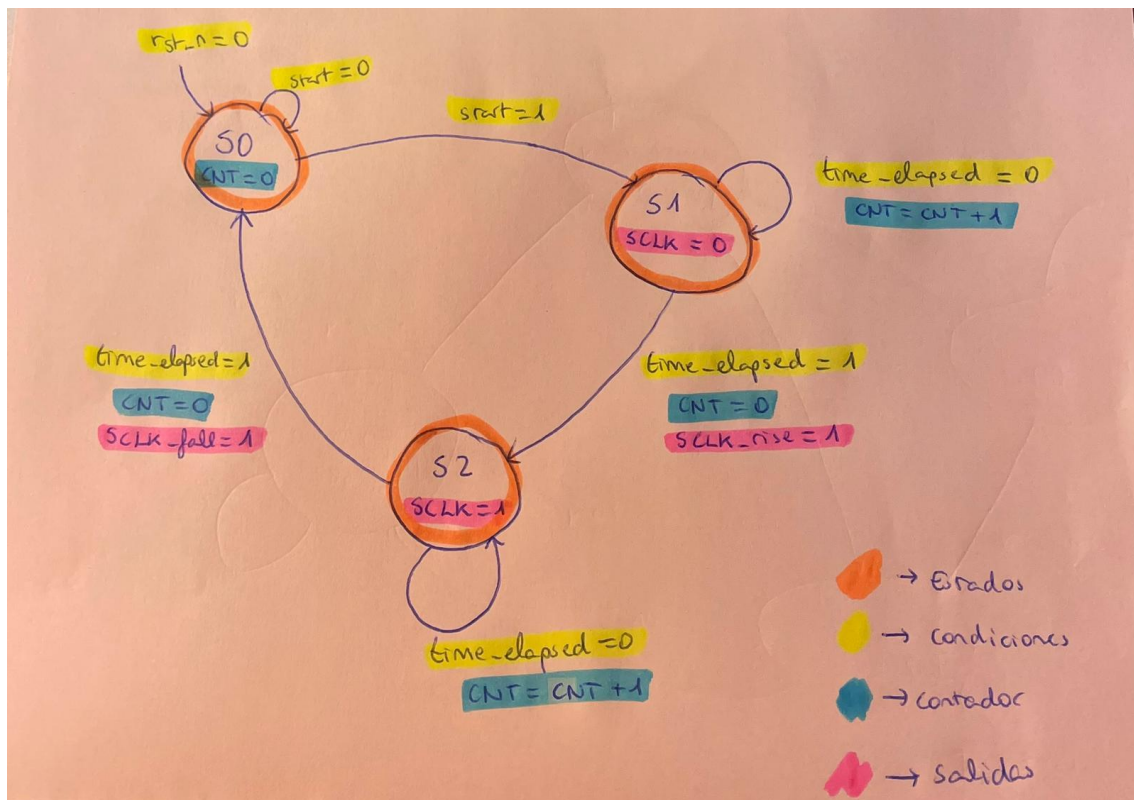 rst_n = 0
start = 0
start = 1
S0
CNT = 0
S1
SCLK = 0
time_elapsed = 0
CNT = CNT + 1
time_elapsed = 1
CNT = 0
SCLK_fall = 1
time_elapsed = 1
CNT = 0
SCLK_rise = 1
S2
SCLK = 1
time_elapsed = 0
CNT = CNT + 1
→ Estados
→ Condiciones
→ contador
→ Salidas